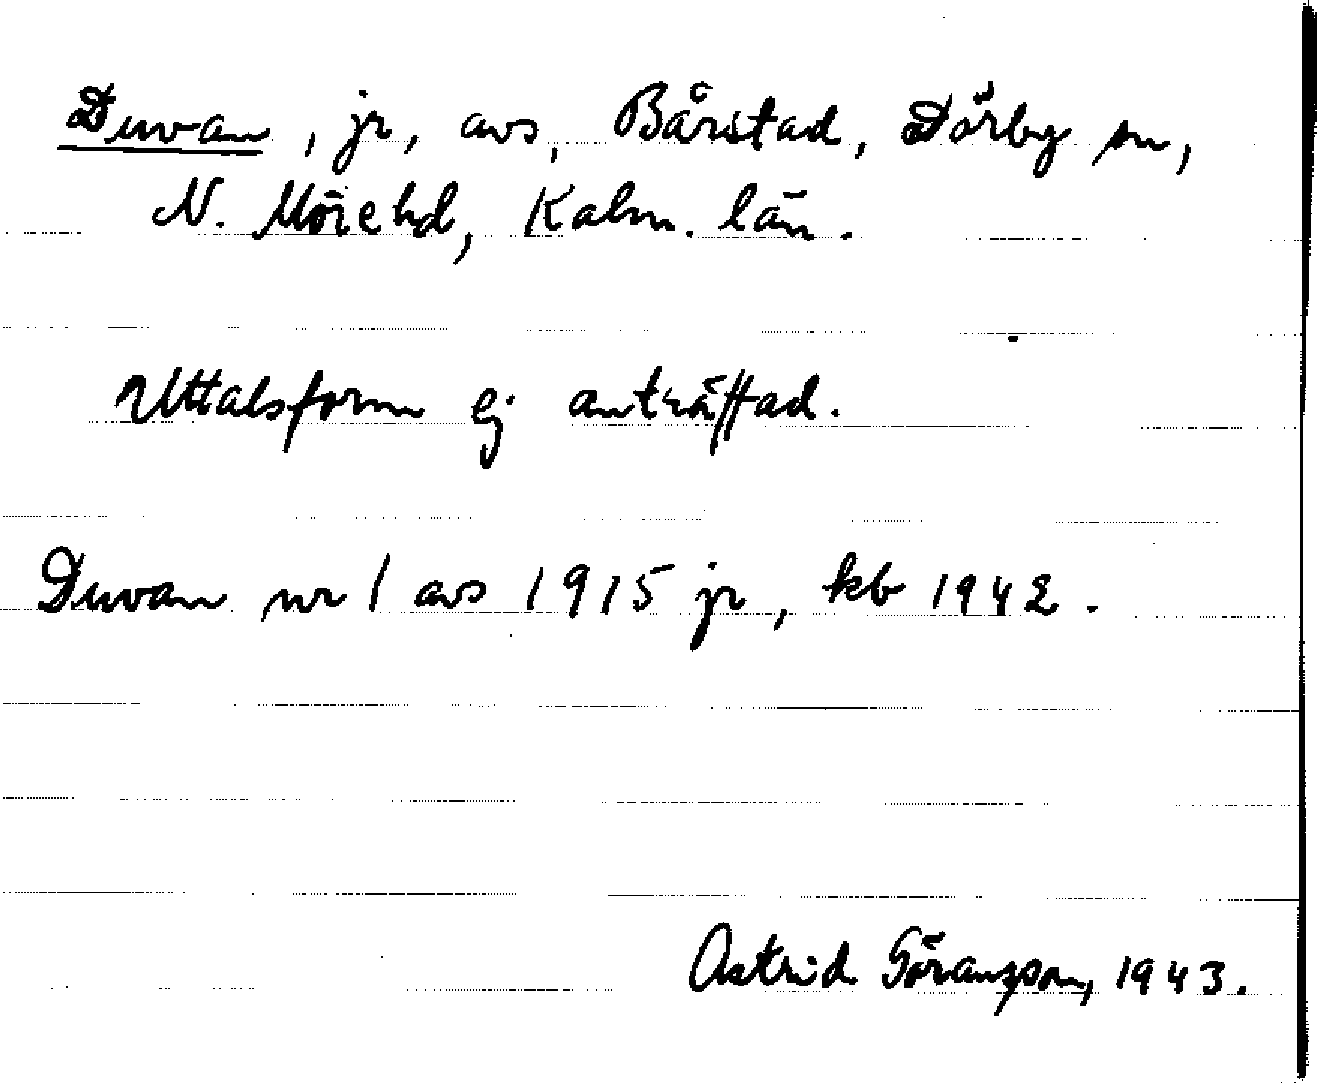 Duvan, jr, avs, Bårstad, Dörby sn,
N. Möre hd, Kalm. län.
Uttalsform ej anträffad.
Duvan nr 1 avs 1915 jr, kb 1942.
Astrid Göransson, 1943.